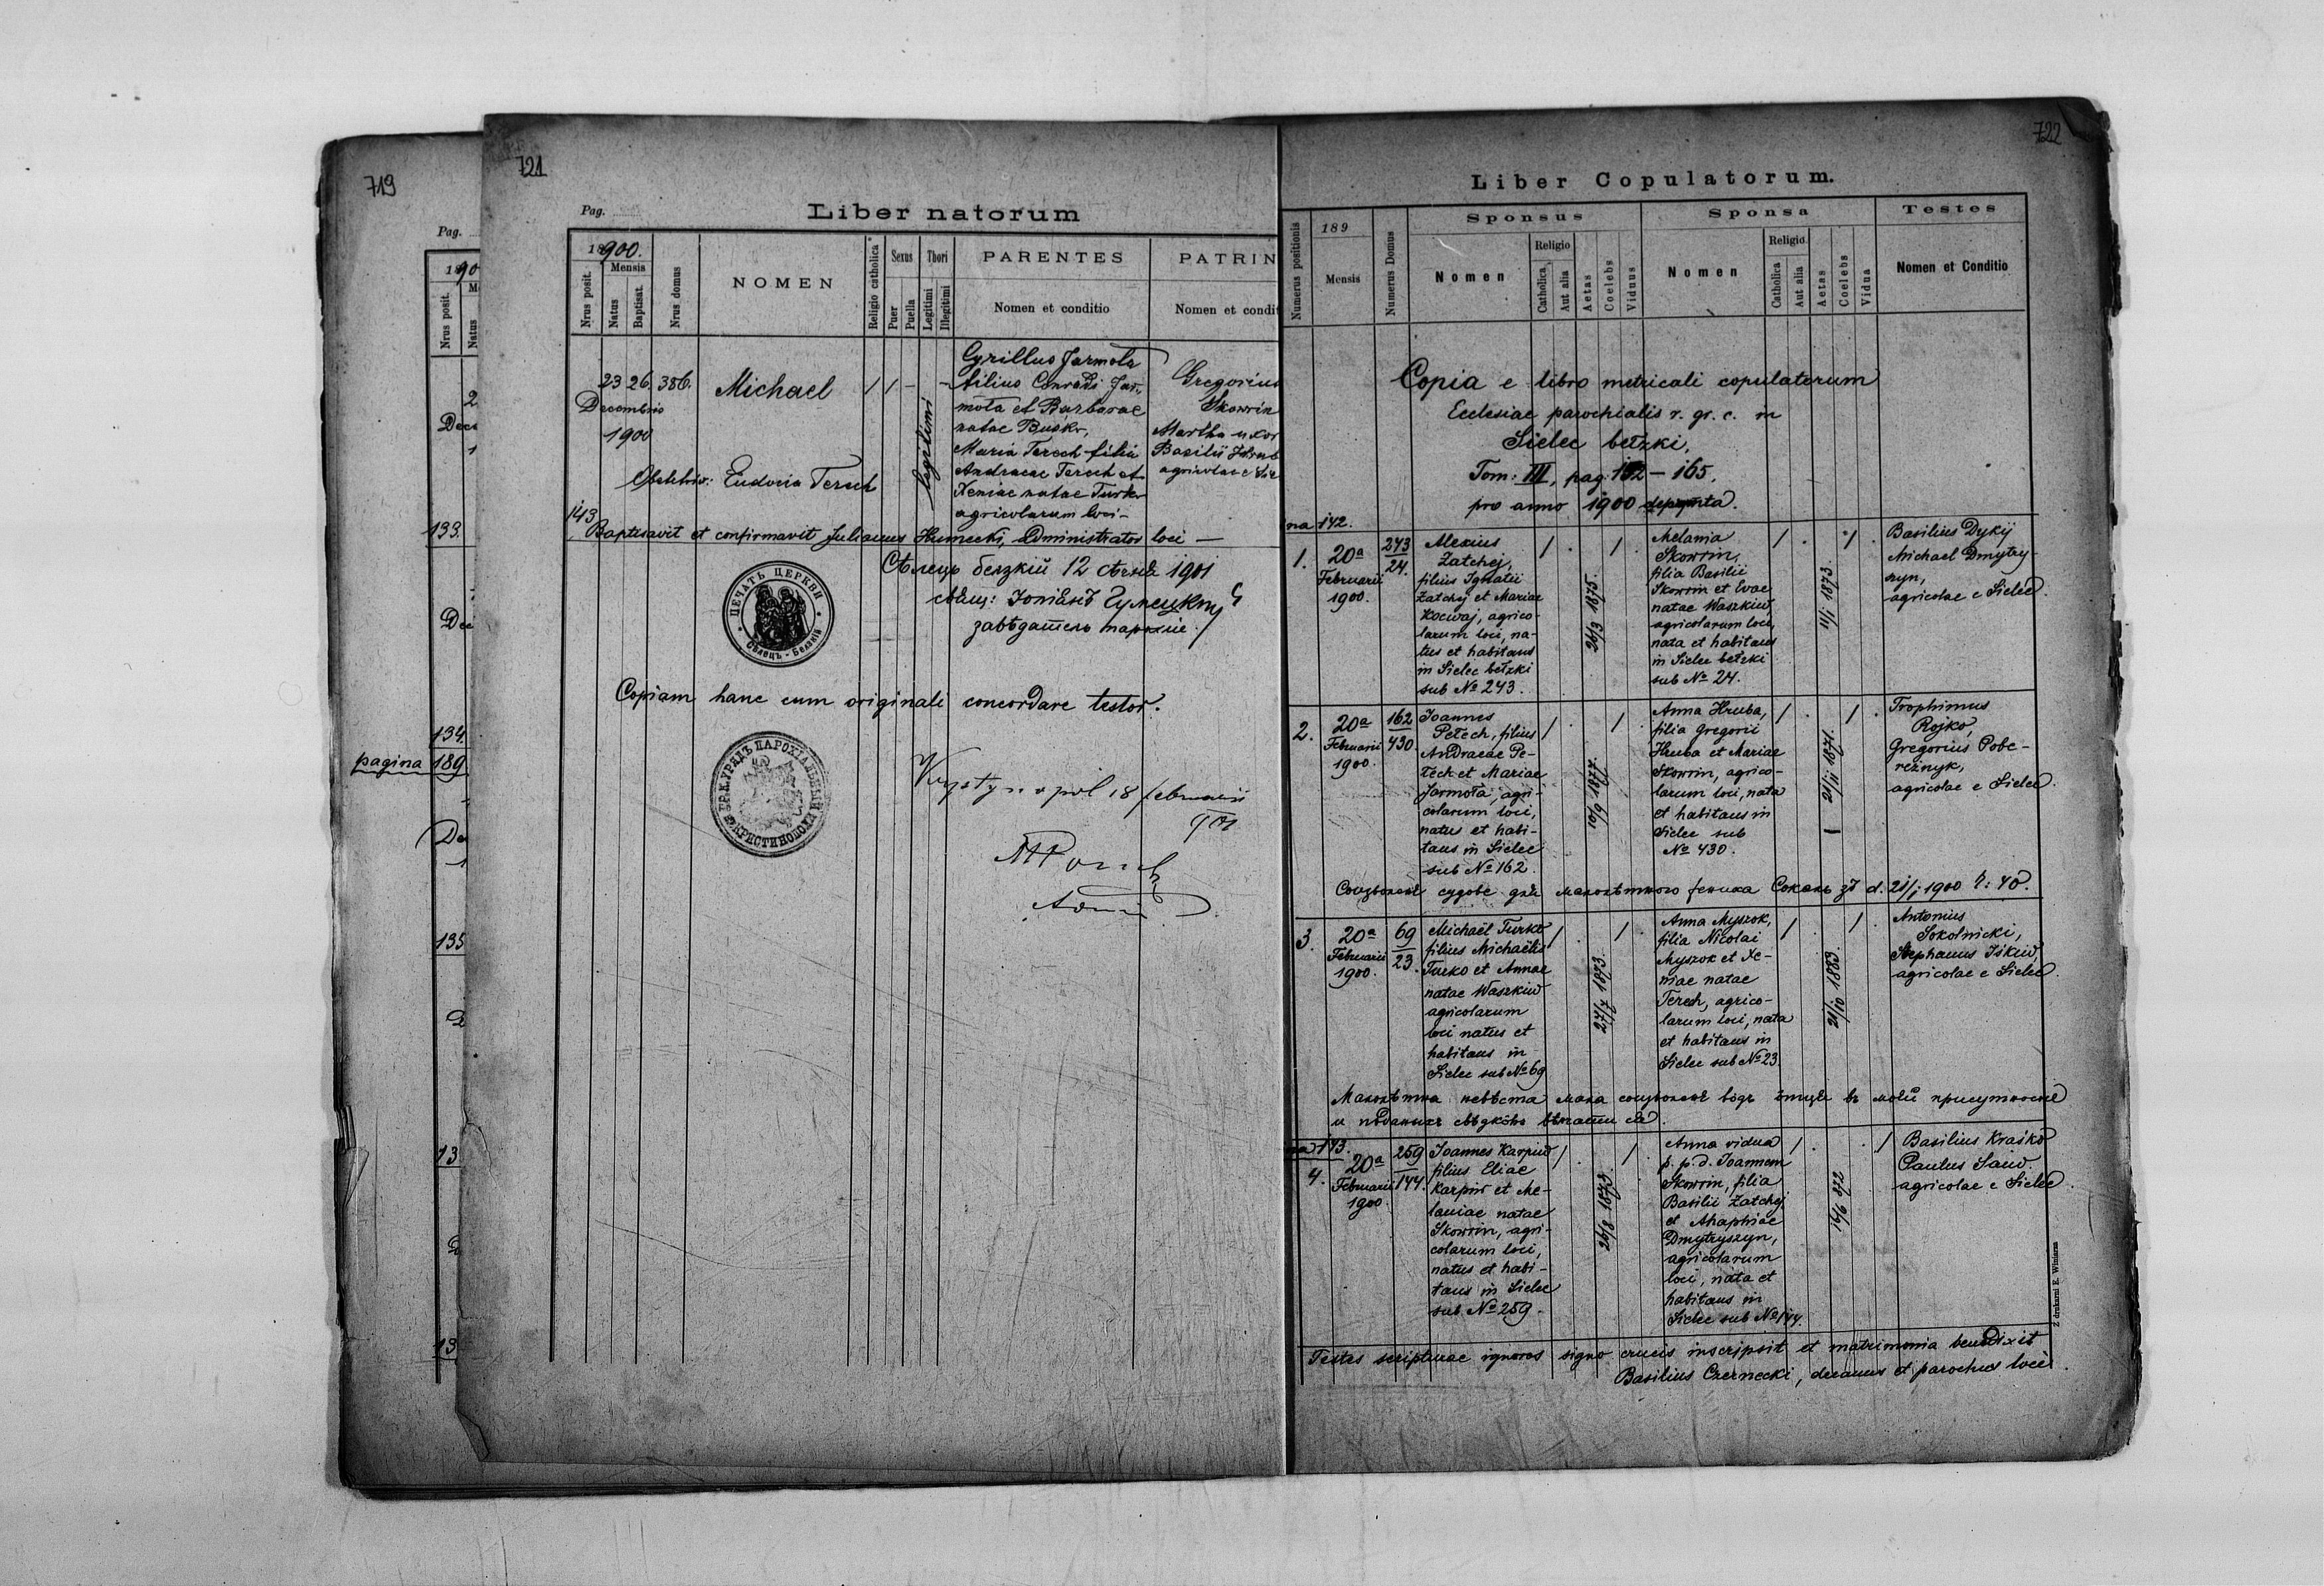 719
Pag.
190
Nrus posit.
Natus
2
Dec
1
133.
Dec
134.
pagina 189
De
1
135
D
13
D
13
721
Pag.
Liber natorum
1900.
Nrus posit.
Mensis
Natus
Baptisat.
Nrus domus
NOMEN
Religio catholica
Sexus
Puer
Puella
Thori
Legitimi
Illegitimi
PARENTES
Nomen et conditio
PATRIN
Nomen et condit
23 26. 386. Michael / / - -
Decembris
1900
legitimi
Cyrillus Jarmola
filius Conradi Jar-
mola et Barbarae
natae Busko,
Maria Terech filia
Andreae Terech et
Xeniae natae Turko
agricolarum loci -
Gregorius
Skowrin
Martha uxor
Basilii Hrub
agricolae e Sie
Obstetrix: Eudocia Terech
143
Baptisavit et confirmavit Julianus Humecki, administrator loci —
Сѣлець белзкій 12 сѣчня 1901
завѣдатель парохіи.
ПЕЧАТЬ ЦЕРКВИ
Сѣлецъ - Белзкій
Copiam hanc cum originali concordare testor.
Krystynopol 18 februarii
901
722
Liber Copulatorum.
Numerus positionis
189
Mensis
Numerus Domus
Sponsus
Nomen
Religio
Catholica
Aut alia
Aetas
Coelebs
Viduus
Sponsa
Nomen
Religio
Catholica
Aut alia
Aetas
Coelebs
Vidua
Testes
Nomen et Conditio
Copia e libro metricali copulatorum
Ecclesiae parochialis r. gr. c. in
Sielec bełzki,
Tom: III, pag: 152 – 165.
pro anno 1900 deprompta.
na 142.
1. 20a 243
24.
Februarii
1900.
Alexius
Zatchej,
filius Ignatii
Zatchej et Mariae
Kociwaj, agrico-
larum loci, na-
tus et habitans
in Sielec bełzki
sub No 243.
/ . / .
26/3 1875.
Melania
Skowrin,
filia Basilii
Skowrin et Evae
natae Waszkiw,
agricolarum loci,
nata et habitans
in Sielec bełzki
sub No 24.
/ . / .
11/1 1873.
Basilius Dykij
Michael Dmytry-
szyn,
agricolae e Sielec.
2. 20a 162
430.
Februarii
1900.
Joannes
Petech, filius
Andreae Pe-
tech et Mariae
Jarmoła, agri-
colarum loci,
natus et habi-
tans in Sielec
sub No 162.
/ . / .
10/9 1877.
Anna Hruba,
filia Gregorii
Hruba et Mariae
Skowrin, agrico-
larum loci, nata
et habitans in
Sielec sub
No 430.
/ . / .
21/11 1871.
Trophimus
Rojko,
Gregorius Pobe-
reżnyk,
agricolae e Sielec.
Соизволенє судове для малолѣтного жениха Сокаль зъ d. 21/1 1900 ч: 40.
3. 20a 69
23.
Februarii
1900.
Michaël Turko
filius Michaëlis
Turko et Annae
natae Waszkiw
agricolarum
loci natus et
habitans in
Sielec sub No 69
/ . / .
27/7 1873.
Anna Myszok,
filia Nicolai
Myszok et Xe-
niae natae
Terech, agrico-
larum loci, nata
et habitans in
Sielec sub No 23.
/ . / .
21/10 1883.
Antonius
Sokolnicki,
Stephanus Iśkiw,
agricolae e Sielec.
Малолѣтна невѣста мала соизволенє водъ отця въ моѣй присутности
na 143.
4. 20a 259
144.
Februarii
1900.
Joannes Karpiw
filius Eliae
Karpiw et Me-
laniae natae
Skowrin, agri-
colarum loci,
natus et habi-
tans in Sielec
sub No 259.
/ . / .
26/8 1875.
Anna vidua
p. p. d. Joannem
Skowrin, filia
Basilii Zatchej
et Ahaphiae
Dmytryszyn,
agricolarum
loci, nata et
habitans in
Sielec sub No 144.
/ . . /
16/6 872
Basilius Kraśko
Paulus Sawd.
agricolae e Sielec.
Testes scripturae ignaros signo crucis inscripsit et matrimonia benedixit
Basilius Czernecki, decanus et parochus loci.
Z drukarni E. Winiarza